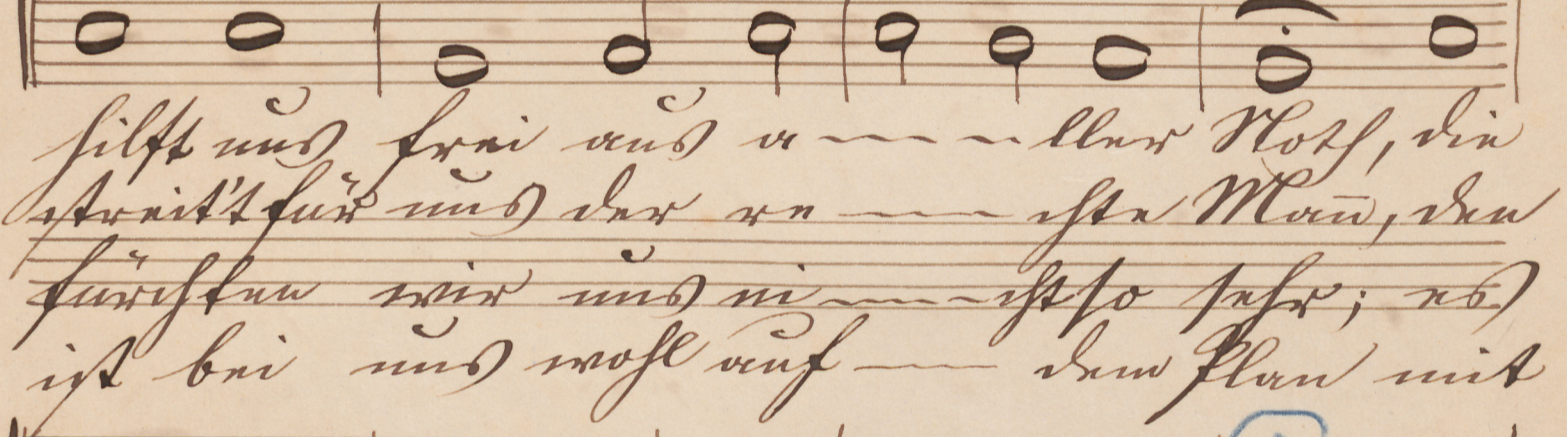 hilft uns frei aus a - - - ller Noth, die
streit't für uns der re - - - chte Man̅, den
fürchten wir uns ni - - - cht so sehr; es
ist bei uns wohl auf - - dem Plan mit